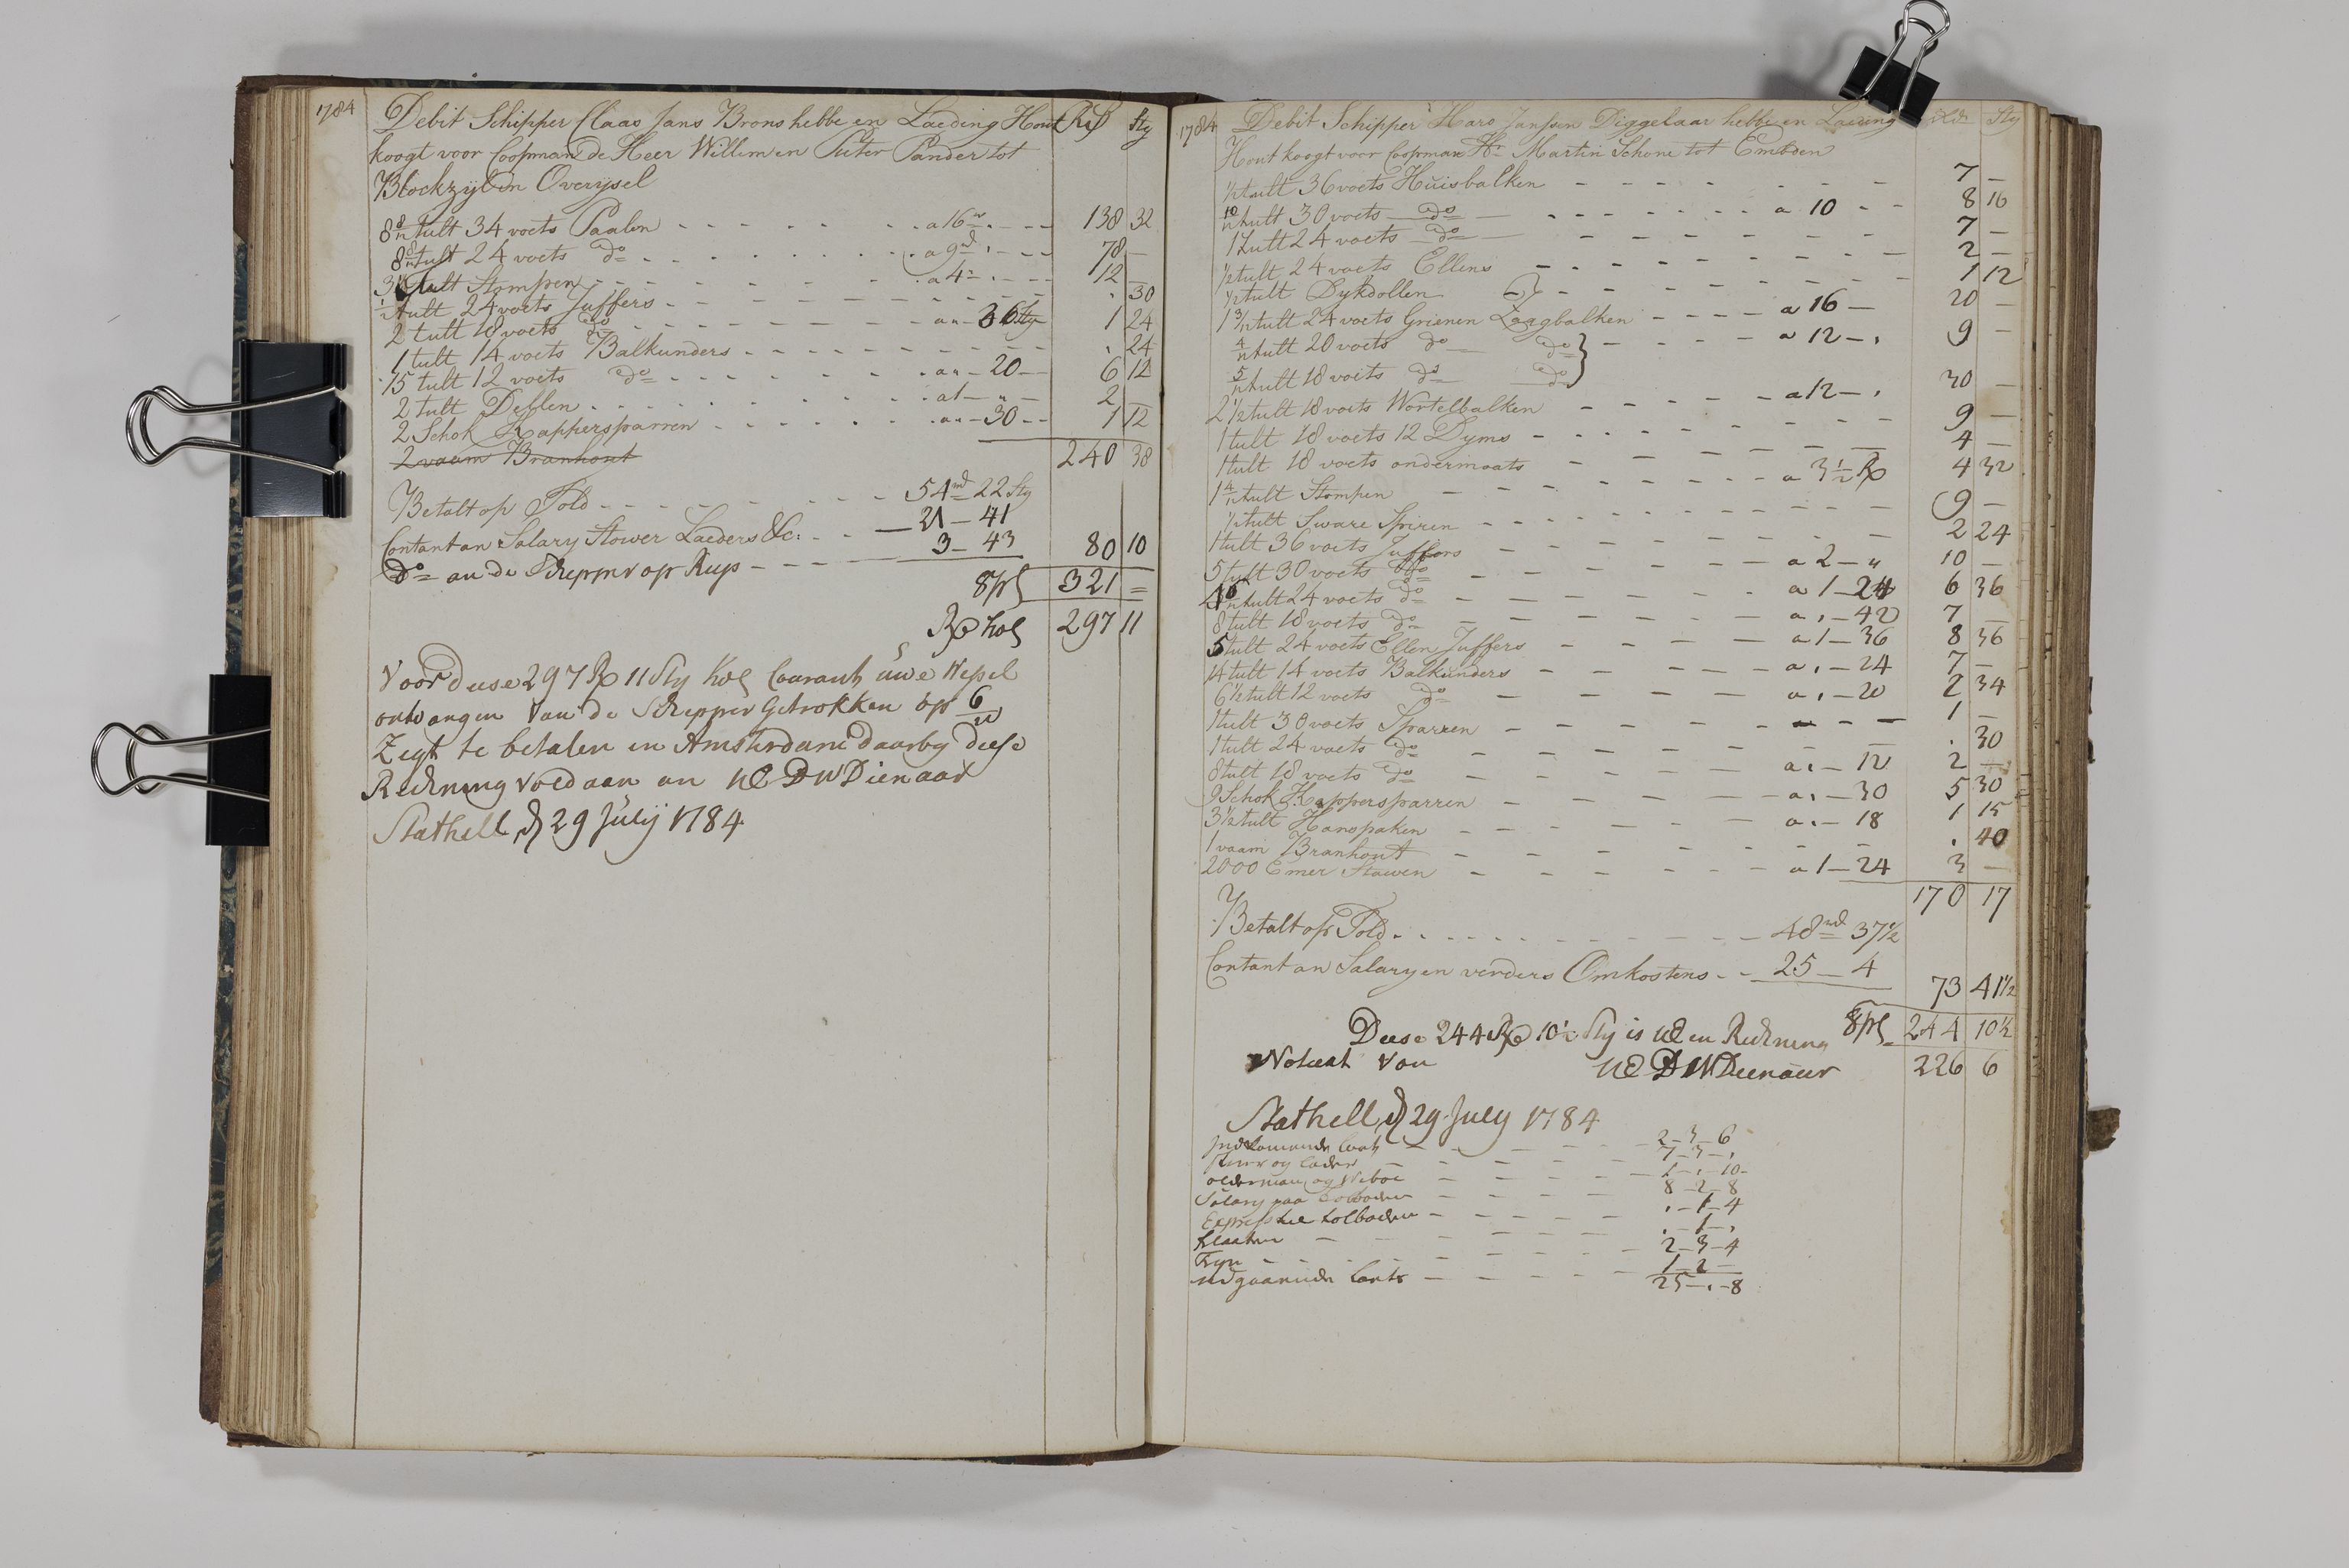 1784 Debit Schipper Claas Jans Brons hebbe en Laeding Hout Rd Sty
koogt voor Coopman de Heer Willem en Pieter Pander tot
Blockzyl in Overijsel
8 8/12 tult 34 voets Paalen a 16 rd 138 32
8 8/12 tult 24 voets do a 9 rd 78 —
3 tult Stompen a 4 12 —
1/2 tult 24 voets Juffers . 30
2 tult 18 voets do a „ 36 sty 1 24
1 tult 14 voets Balkunders . 24
15 tult 12 voets do a „ — 20 — 6 12
2 tult Dellen a 1 — „ — 2 —
2 Schok Kappersparren a „ — 30 1 12
2 vaam Branhout
240 38
Betalt op Told 54 rd 22 Sty
Contant an Salary Stower Laeders &c: 21 — 41
do an de Schipper op Reys 3 — 43 80 10
321 =
297 11
Voor deese 297 11 Sty Courant uwe Wessel
ontvangen van de Schipper Getrokken op 6/m
Zegt te betalen in Amsterdam daarby deese
Rechnung voldaan an UE DW Dienaar
Stathell d 29 July 1784
1784 Debit Schipper Haro Janssen Diggelaar hebbe en Laeding Rd Sty
Hout koogt voor Coopman Hr Martin Schone tot Embden
1/2 tult 36 voets Huisbalken 7 —
10/12 tult 30 voets do a 10 8 16
1 tult 24 voets do 7 —
1/2 tult 24 voets Ellens 2 —
1/2 tult Dykdollen 1 12
1 3/12 tult 24 voets Grienen Zaagbalken a 16 — 20 —
4/12 tult 20 voets do do a 12 — „ 9 —
5/12 tult 18 voets do do
2 1/2 tult 18 voets Wortelbalken a 12 — „ 30 —
1 tult 18 voets 12 Dyms 9 —
1 tult 18 voets ondermaats 4 —
1 4/12 tult Stompen a 3 1/2 4 32
1/2 tult Sware Spiren 9 —
1 tult 36 voets Juffers 2 24
5 tult 30 voets do a 2 — „ 10 —
tult 24 voets do a 1 — 24 6 36
8 tult 18 voets do a „ — 42 7 —
5 tult 24 voets Ellen Juffers a 1 — 36 8 36
14 tult 14 voets Balkunders a „ — 24 7 —
6 1/2 tult 12 voets do a „ — 20 2 34
1 tult 30 voets Sparren 1 —
1 tult 24 voets do . 30
8 tult 18 voets do a „ — 12 2 —
9 Schok Kappersparren a „ — 30 5 30
3 1/2 tult Hanspaken a „ — 18 1 15
1 vaam Branhout . 40
2000 Emer Stawen a 1 — 24 3 —
170 17
Betalt op Told 48 rd 37 1/2
Contant an Salary en verders Omkostens 25 — 4
73 41 1/2
Deese 244 10 1/2 Sty is UE en Rechnung 244 10 1/2
Noteert Von UE DW Dienaar 226 6
Stathell d 29 July 1784
2 — 3 — 6
7 — 3 — „
olderman og 1 — „ — 10
Salary paa Tolboden 8 — 2 — 8
Express tolboden „ — 1 — 4
„ — 1 — „
2 — 3 — 4
udgaaende 1 — 2 —
25 — „ — 8